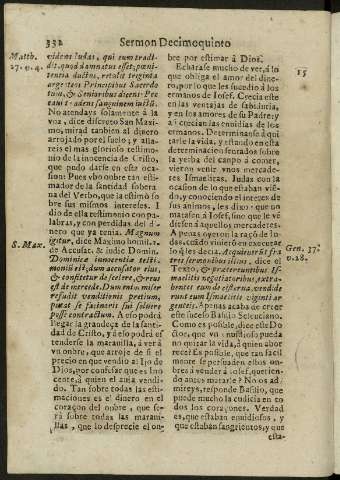 332 Sermon Decimoquinto
Matth. 27. v. 4.
videns Iudas, qui eum tradi-
dit, quod damnatus esset; pœni-
tentia ductus, retulit triginta
argenteos Principibus Sacerdo
tum, & Senioribus dicens: Pec
caui tradens sanguinem iustũ.
No atendays solamente à la
venta, dice discreto San Maxi-
mo, mirad tanbien al dinero
arrojado por el suelo; y alla-
reis el mas glorioso testimo-
nio de la inocencia de Cristo,
que pudo darse en esta oca-
sion: Pues vbo onbre tan esti-
mador de la santidad sobera
na del Verbo, que la estimò so
bre sus mismos intereses. I
dio de ella testimonio con pa-
labras, y con perdidas del di-
nero que ya tenia. Magnum
S. Max.
igitur, dice Maximo homil. 1.
de Accusat. & iudic. Domin.
Dominicæ innocentiæ testi-
monium est, dum accusator eius,
& confitetur de scelere, & reus
est de mercede. Dum enim miser
refudit venditionis pretium,
putat se facinoris sui soluere
posse contractum. A eso podrà
llegar la grandeça de la santi-
dad de Cristo, y à eso podrà el
tenderse la marauilla, à ver à
vn onbre, que arroje de si el
precio en que vendio al Ijo de
Dios, por confesar que es Ino
cente, à quien el auia vendi-
do. Tan sobre todas las esti-
maciones es el dinero en el
coraçon del onbre, que se-
rà sobre todas las maraui-
llas, que lo desprecie el on-
bre por estimar à Dios.
15
Echarase mucho de ver, à lo
que obliga el amor del dine-
ro, por lo que les sucediò à los
ermanos de Iosef. Crecia este
en las ventajas de sabiduria,
y en los amores de su Padre; y
aì crecian las enuidias de los
ermanos. Determinanse à qui
tarle la vida, y estando en esta
determinacion sentados sobre
la yerba del canpo à comer,
vieron venir vnos mercade-
res Ismaelitas. Iudas con la
ocasion de lo que estaban viẽ-
do, y conociendo el interes de
sus animos, les dixo: que no
matasen à Iosef, sino que le vẽ
diesen à aquellos mercaderes.
A penas oyeron la raçõ de Iu-
das, cuãdo vinierõ en executar
Gen. 37. v. 28.
lo q̃ les decia. Acquieuerũt fra
tres sermonibus illius, dice el
Texto, & prætereuntibus Is-
maelitis negotiatoribus, extra-
hentes eum de cisterna, vendide
runt eum Ismaelitis viginti ar-
genteis. A penas acaba de creer
este suceso Basilio Seleuciano.
Como es posible, dice este Do
ctor, que vn furioso pueda
no quitar la vida, à quien abor
rece? Es posible, que tan facil
mente se persuaden ellos on-
bres à vender à Iosef, querien-
do antes matarle? No os ad-
mireys, responde Basilio, que
puede mucho la cudicia en to
dos los coraçones. Verdad
es, que estaban enuidiosos, y
que estaban sangrientos, y que
esta-